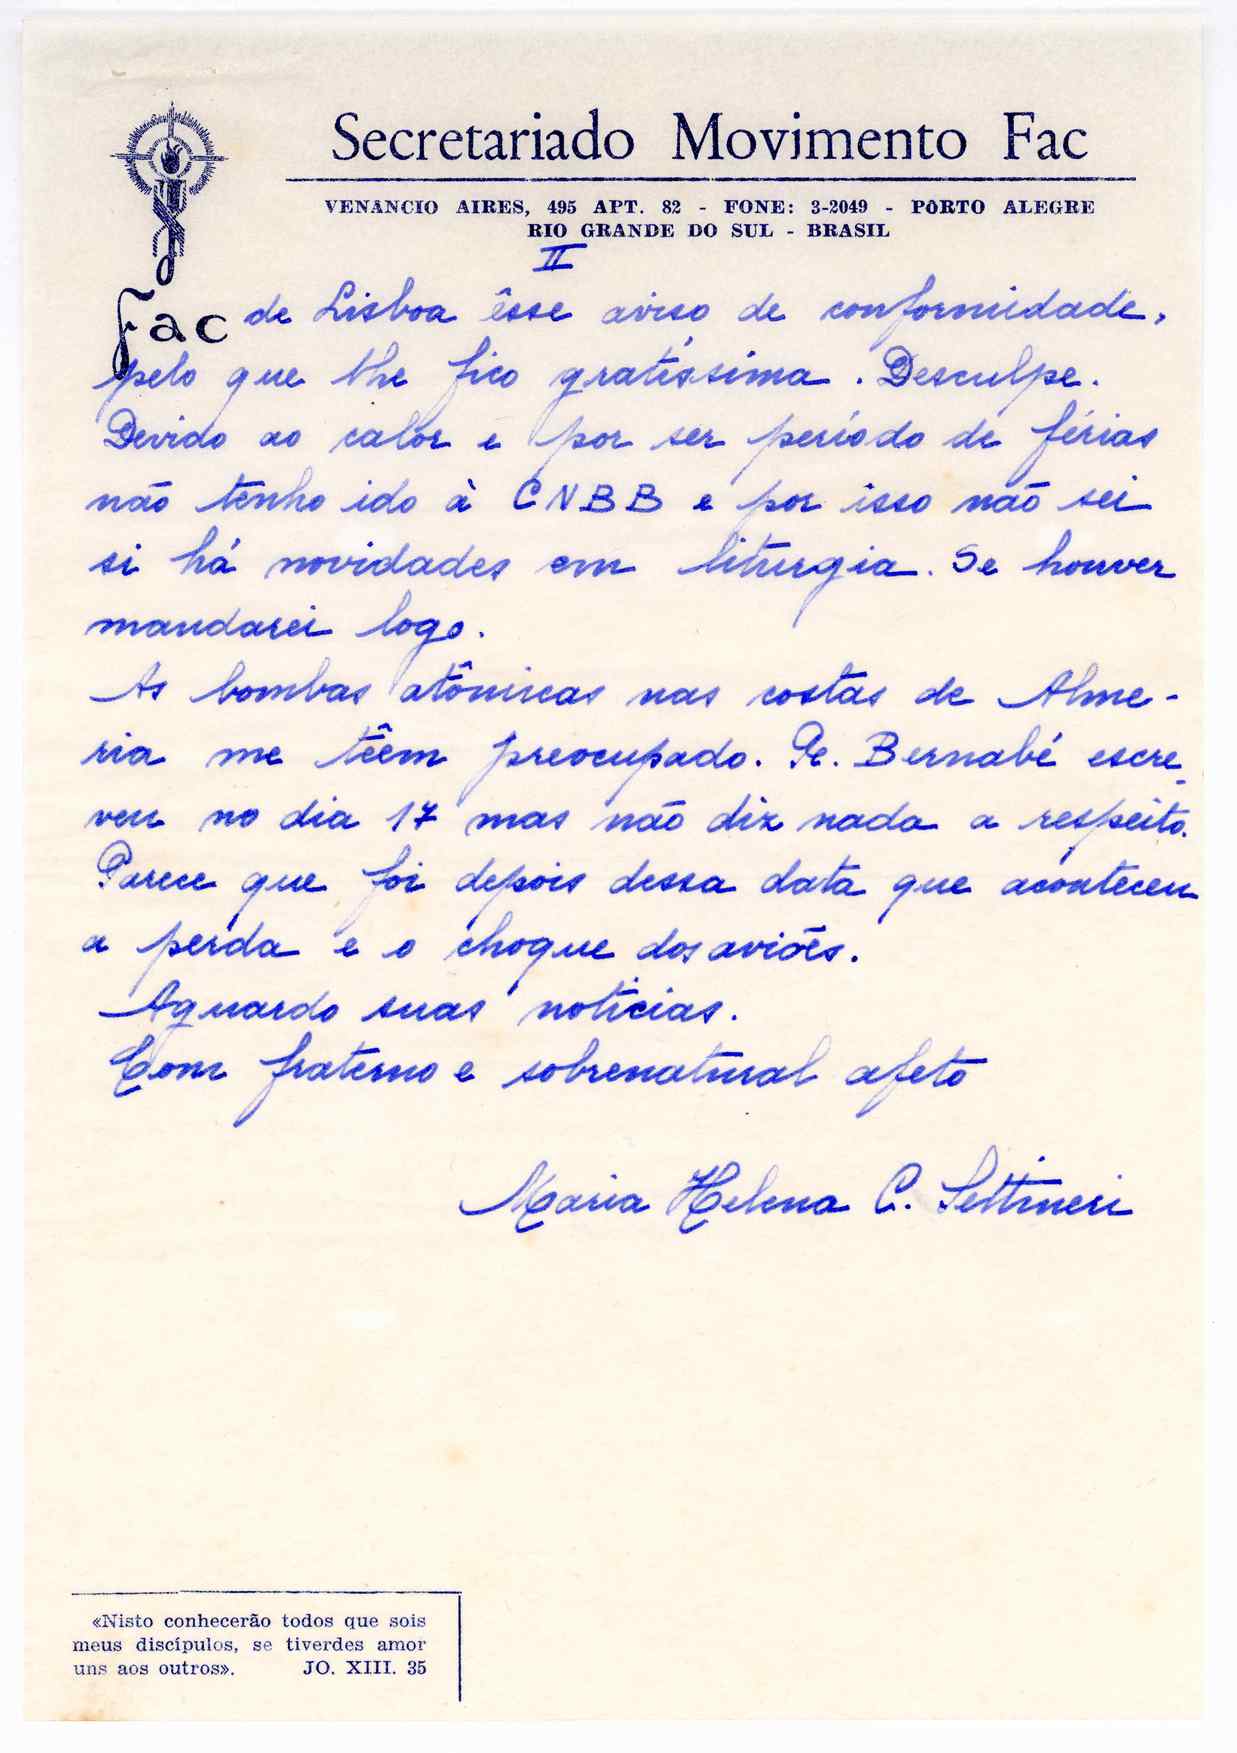 Secretariado Movimento Fac
VENÂNCIO AIRES, 495 APT. 82 - FONE: 3-2049 - PÔRTO ALEGRE
RIO GRANDE DO SUL - BRASIL
II
Fac
de Lisboa êsse aviso de conformidade,
pelo que lhe fico gratíssima. Desculpe.
Devido ao calor e por ser período de férias
não tenho ido à CNBB e por isso não sei
si há novidades em liturgia. Se houver
mandarei logo.
As bombas atômicas nas costas de Alme-
ria me têem preocupado. Pe. Bernabé escre-
veu no dia 17 mas não diz nada a respeito.
Parece que foi depois dessa data que aconteceu
a perda e o choque dos aviões.
Aguardo suas notícias.
Com fraterno e sobrenatural afeto
Maria Helena C. Settineri
«Nisto conhecerão todos que sois
meus discípulos, se tiverdes amor
uns aos outros». JO. XIII. 35